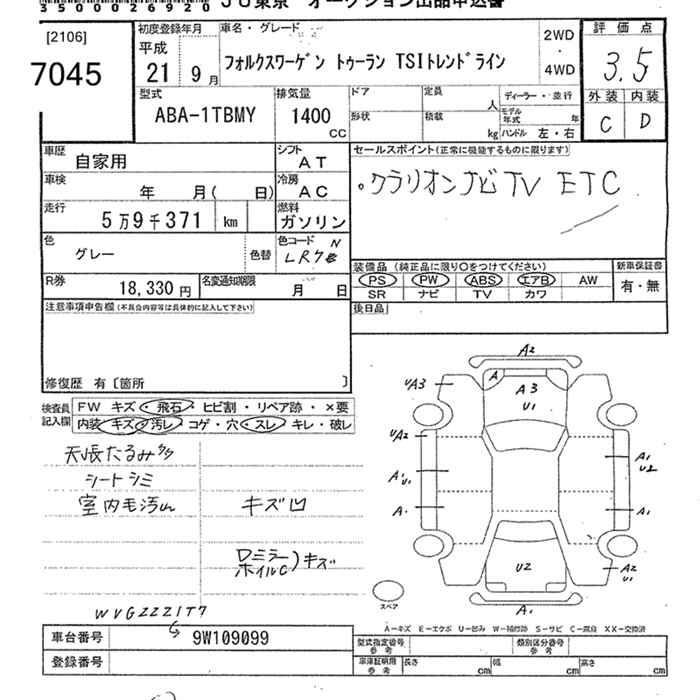 35000026920 JU東京 オークション出品申込書
[2106]
7045
初度登録年月
平成
21 9月
車名・グレード
フォルクスワーゲン トゥーラン TSIトレンドライン
2WD
・
4WD
評価点
3.5
外装 内装
C D
型式
ABA-1TBMY
排気量
1400
CC
ドア
形状
定員
人
積載
kg
ディーラー・並行
モデル年式 年
ハンドル 左・右
車歴
自家用
シフト
AT
セールスポイント(正常に機能するものに限ります)
。クラリオンナビ TV ETC
車検
年 月( 日)
冷房
AC
走行
5万9千371 km
燃料
ガソリン
色
グレー
色替
色コード
N
LR7
装備品(純正品に限り○をつけてください)
PS PW ABS エアB AW
SR ナビ TV カワ
新車保証書
有・無
R券
18,330円
名変通知期限
月 日
後日品
注意事項申告欄(不具合内容等は具体的に記入して下さい)
修復歴 有〔箇所 〕
検査員
記入欄
FW キズ・飛石・ヒビ割・リペア跡・×要
内装・キズ・汚レ・コゲ・穴・スレ・キレ・破レ
天張たるみ
シートシミ
室内毛汚れ
キズ凹
ロミラー
ホイルC)キズ
A2
UA3
A
A3
U1
UA2
A1
U1
A1
A1
U2
A1
U2
A2
U1
A1
スペア
A―キズ E―エクボ U―凹み W―補修跡 S―サビ C―腐食 XX―交換済
WVGZZZ1T7
車台番号
9W109099
登録番号
型式指定番号
参考
類別区分番号
参考
車庫証明用
参考
長さ cm
幅 cm
高さ cm